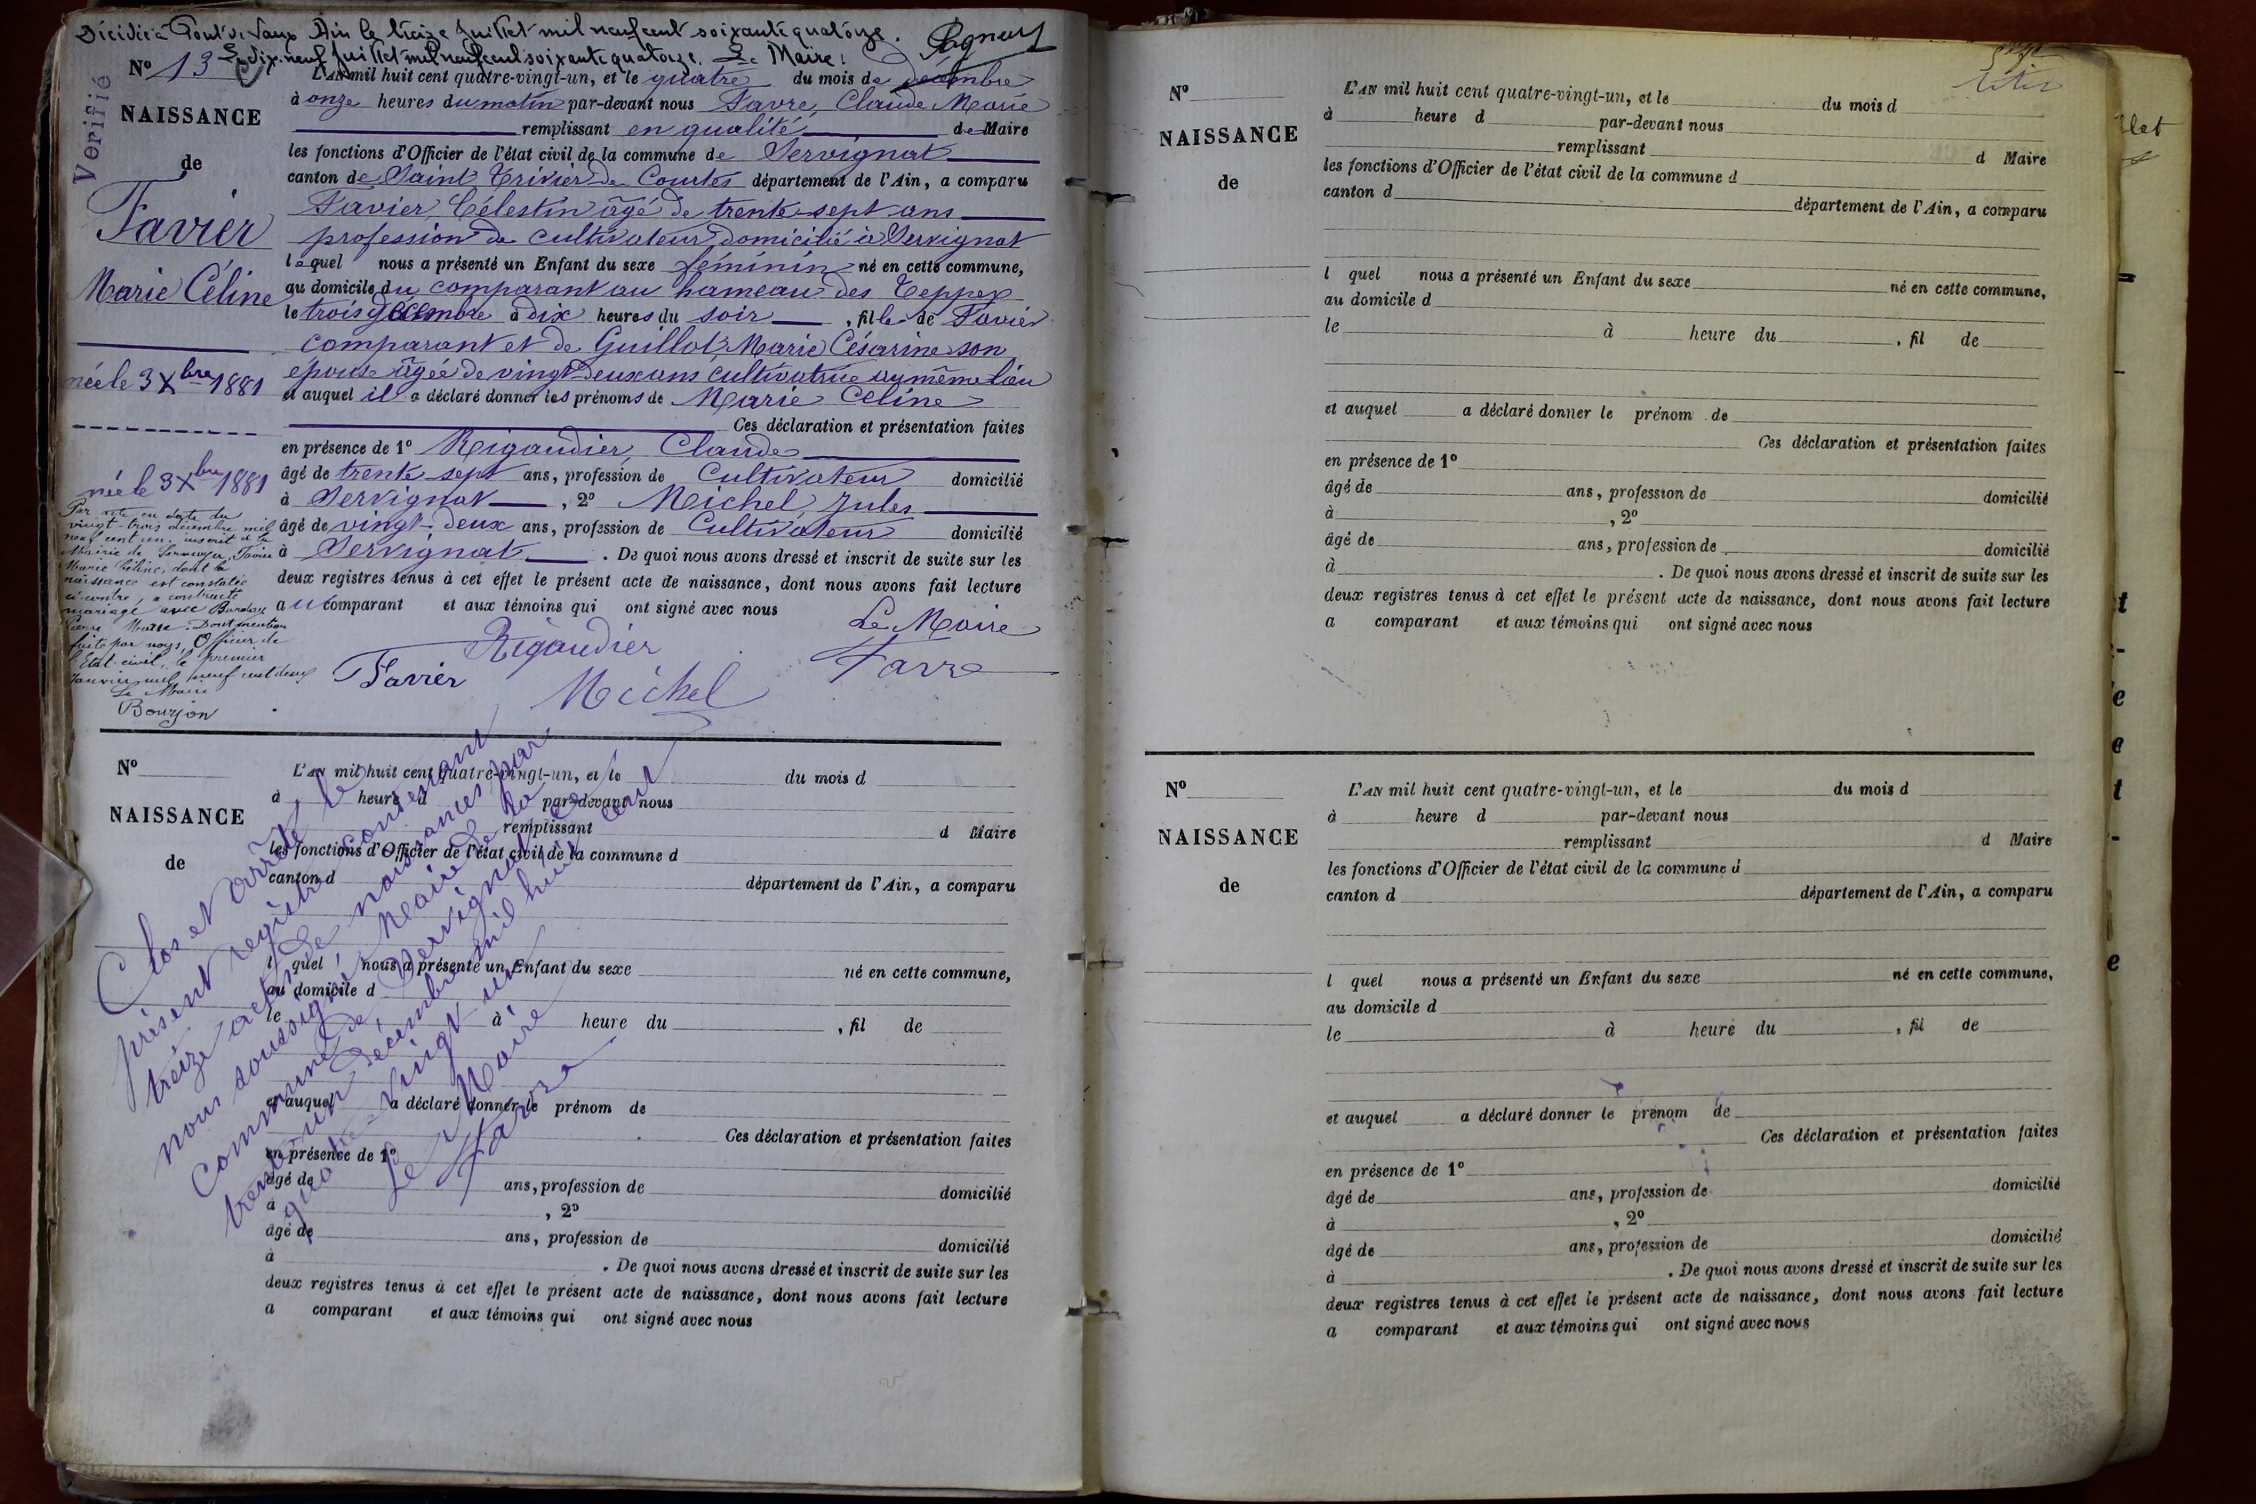 Décédée à Pont de Vaux Ain le treize juillet mil neuf cent soixante quatorze.
Le dix-neuf juillet mil neuf cent soixante quatorze. Le Maire:
Vérifié
Nº 13
NAISSANCE
de
Favier
Marie Céline
née le 3 Xbre 1881
née le 3 Xbre 1881
Par acte en date du
vingt-trois décembre mil
neuf cent un inscrit à la
Mairie de Favier
Marie Céline, dont la
naissance est constatée
ci-contre, a contracté
mariage avec
Pierre Marie. Dont mention
faite par nous, Officier de
l'Etat-civil, le premier
Janvier mil neuf cent deux
Le Maire
Bourjon
L'AN mil huit cent quatre-vingt-un, et le quatre du mois de décembre
à onze heures du matin par-devant nous Favre, Claude Marie
remplissant en qualité de Maire
les fonctions d'Officier de l'état civil de la commune de Servignat
canton de Saint Trivier de Courtes département de l'Ain, a comparu
Favier, Célestin âgé de trente-sept ans
profession de cultivateur domicilié à Servignat
lequel nous a présenté un Enfant du sexe féminin né en cette commune,
au domicile du comparant au hameau des Teppes
le trois décembre à dix heures du soir, fille de Favier
comparant et de Guillot, Marie Césarine son
épouse âgée de vingt-deux ans, cultivatrice au même lieu
et auquel il a déclaré donner les prénoms de Marie Céline
Ces déclaration et présentation faites
en présence de 1º Rigaudier, Claude
âgé de trente-sept ans, profession de Cultivateur domicilié
à Servignat, 2º Michel, Jules
âgé de vingt-deux ans, profession de Cultivateur domicilié
à Servignat. De quoi nous avons dressé et inscrit de suite sur les
deux registres tenus à cet effet le présent acte de naissance, dont nous avons fait lecture
au comparant et aux témoins qui ont signé avec nous
Le Maire
Rigaudier
Favier
Michel
Favre
Nº
NAISSANCE
de
L'AN mil huit cent quatre-vingt-un, et le du mois d
à heure d par-devant nous
remplissant d Maire
les fonctions d'Officier de l'état civil de la commune d
canton d département de l'Ain, a comparu
l quel nous a présenté un Enfant du sexe né en cette commune,
au domicile d
le à heure du , fil de
et auquel a déclaré donner le prénom de
Ces déclaration et présentation faites
en présence de 1º
âgé de ans, profession de domicilié
à , 2º
âgé de ans, profession de domicilié
à . De quoi nous avons dressé et inscrit de suite sur les
deux registres tenus à cet effet le présent acte de naissance, dont nous avons fait lecture
a comparant et aux témoins qui ont signé avec nous
Clos et arrêté le
présent registre contenant
treize actes de naissances par
nous soussigné Maire de la
commune de Servignat ce
trente un décembre mil huit cent
quatre-vingt un
Le Maire
Favre
Nº
NAISSANCE
de
L'AN mil huit cent quatre-vingt-un, et le du mois d
à heure d par-devant nous
remplissant d Maire
les fonctions d'Officier de l'état civil de la commune d
canton d département de l'Ain, a comparu
l quel nous a présenté un Enfant du sexe né en cette commune,
au domicile d
le à heure du , fil de
et auquel a déclaré donner le prénom de
Ces déclaration et présentation faites
en présence de 1º
âgé de ans, profession de domicilié
à , 2º
âgé de ans, profession de domicilié
à . De quoi nous avons dressé et inscrit de suite sur les
deux registres tenus à cet effet le présent acte de naissance, dont nous avons fait lecture
a comparant et aux témoins qui ont signé avec nous
Nº
NAISSANCE
de
L'AN mil huit cent quatre-vingt-un, et le du mois d
à heure d par-devant nous
remplissant d Maire
les fonctions d'Officier de l'état civil de la commune d
canton d département de l'Ain, a comparu
l quel nous a présenté un Enfant du sexe né en cette commune,
au domicile d
le à heure du , fil de
et auquel a déclaré donner le prénom de
Ces déclaration et présentation faites
en présence de 1º
âgé de ans, profession de domicilié
à , 2º
âgé de ans, profession de domicilié
à . De quoi nous avons dressé et inscrit de suite sur les
deux registres tenus à cet effet le présent acte de naissance, dont nous avons fait lecture
a comparant et aux témoins qui ont signé avec nous